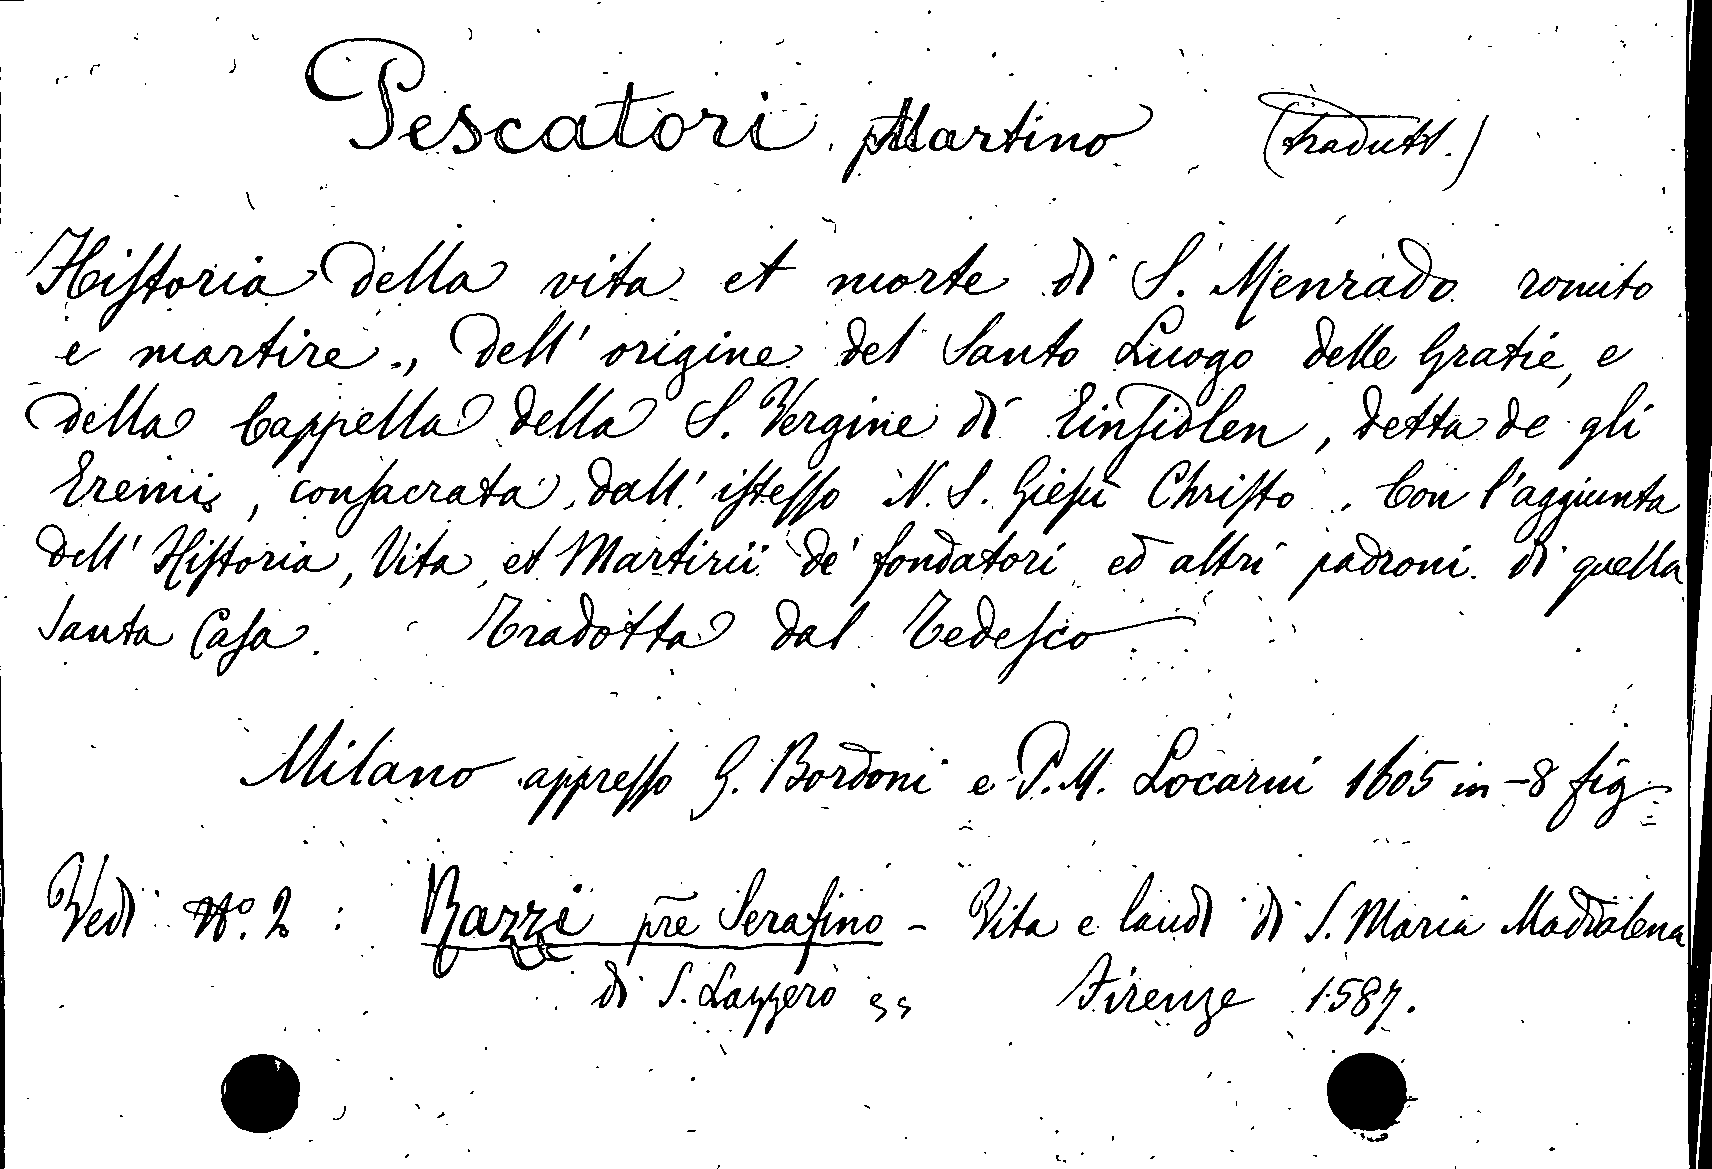 Pescatori Martino (tradutt.)
Hiſtoria della vita et morte di S. Menrado romito
e martire, dell' origine del Santo Luogo delle Gratie, e
della Cappella della S. Vergine di Einſidlen, detta de gli
Eremi, conſacrata dall' iſteſſo N. S. Gieſù Chriſto. Con l'aggiunta
dell' Hiſtoria, Vita, et Martirii de' fondatori ed altri padroni di quella
Santa Caſa. Tradotta dal Tedeſco
Milano appreſſo G. Bordoni e P. M. Locarni 1605 in-8 fig
Vedi No. 2 : Razzi pre Serafino - Vita e laudi di S. Maria Maddalena
di S. Lazzero ,, Firenze 1587.